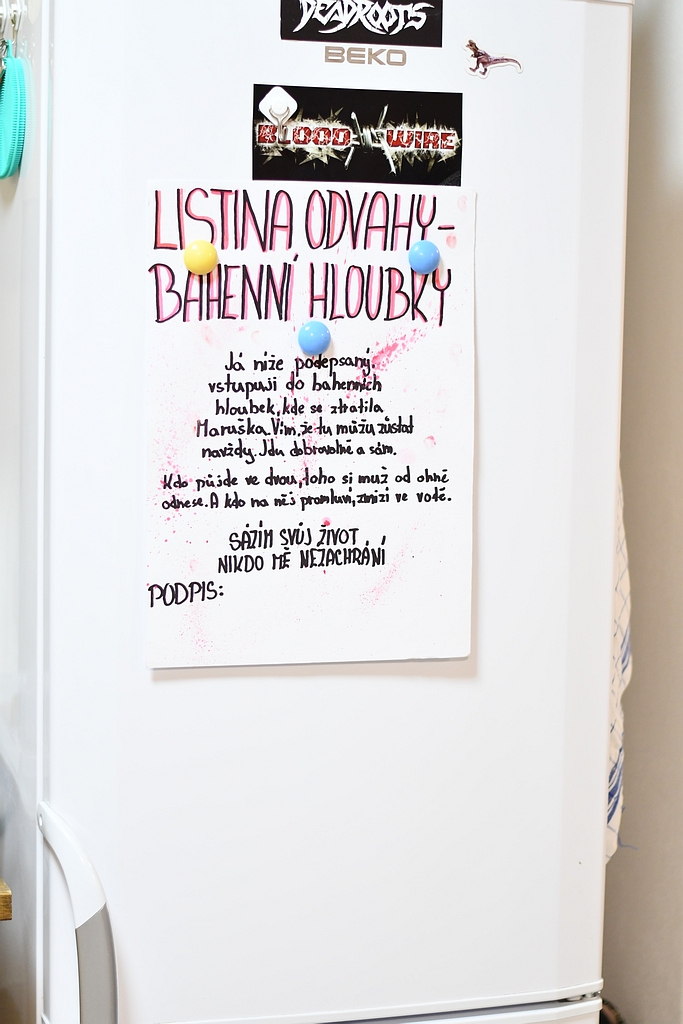 DEADROOTS
BEKO
BLOOD WIRE
LISTINA ODVAHY-
BAHENNÍ HLOUBKY
Já níže podepsaný,
vstupuji do bahenních
hloubek, kde se ztratila
Maruška. Vím, že tu můžu zůstat
navždy. Jdu dobrovolně a sám.
Kdo půjde ve dvou, toho si muž od ohně
odnese. A kdo na něj promluví, zmizí ve vodě.
SÁZÍM SVŮJ ŽIVOT
NIKDO MĚ NEZACHRÁNÍ
PODPIS: